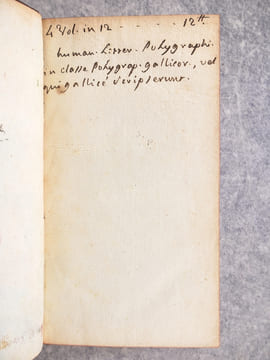 4 Vol. in 12 - - - - - 12 ₶
human. Litter. Polygraphi.
in classe Polygrap. gallicor., vel
qui gallicè scripserunt.